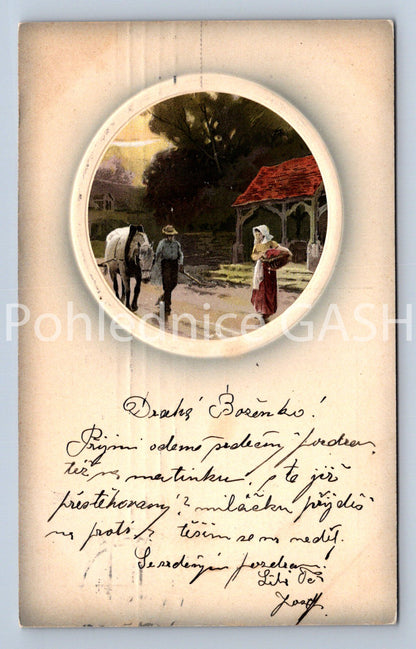 Pohlednice GASH
Drahá Boženko!
Přijmi odemě srdečný pozdrav,
též na maminku, a te již
přestěhovaný? miláčku přijdeš
na proti? těším se na neděl.
Se srdečným pozdravem!
Líbá Tě
Josef